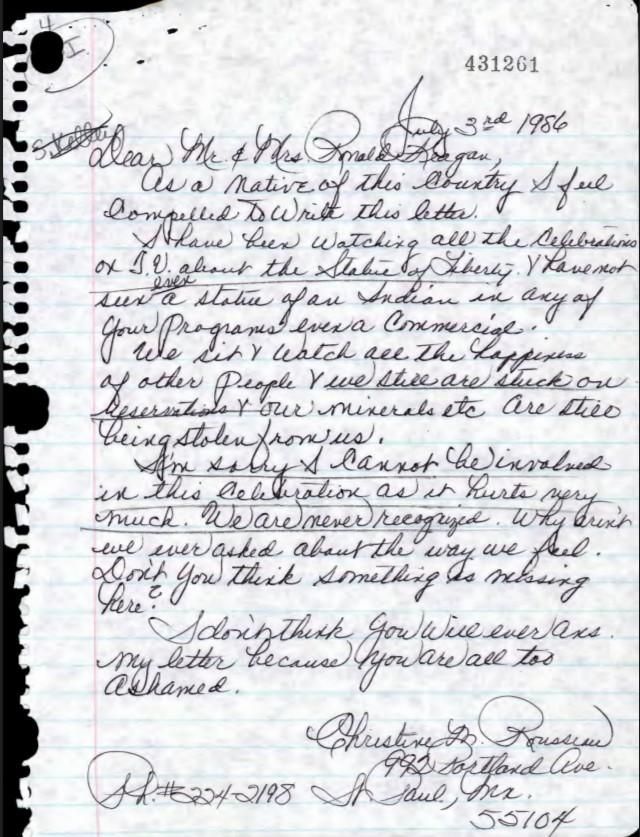 4
I.
431261
S. Kelley
July 3rd 1986
Dear Mr. & Mrs Ronald Reagan,
As a Native of this Country I feel
Compelled To Write this letter.
I have been watching all the Celebrations
on T.V. about the Statue of Liberty. & have not
even
seen a statue of an Indian in any of
your Programs even a Commercial.
We sit & Watch all the happiness
of other People & we still are stuck on
Reservations & our minerals etc are still
being stolen from us.
I'm sorry I Cannot be involved
in this Celebration as it hurts very
much. We are never recognized. Why arin't
we ever asked about the way we feel.
Don't you think something is missing
here?
I don't think you will ever ans.
my letter because you are all too
ashamed.
Christine M. Rousseau
992 Portland Ave.
Ph. # 224-2198 St Paul, Mn.
55104